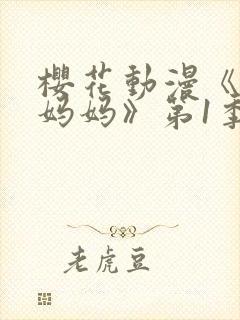 櫻花動漫《
妈妈》第1季
老虎豆